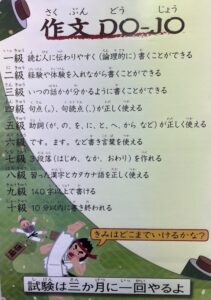 さく ぶん どう じょう
作文DO-JO
一級 読む人に伝わりやすく(論理的に)書くことができる
二級 経験や体験を入れながら書くことができる
三級 いつの話かが分かるように書くことができる
四級 句点(。)、句読点(、)が正しく使える
五級 助詞(が、の、を、に、と、へ、から など)が正しく使える
六級 です。ます。など書き言葉を使える
七級 3段落(はじめ、なか、おわり)を作れる
八級 習った漢字とカタカナ語を正しく使える
九級 140字以上で書ける
十級 10分以内に書き終われる
きみはどこまでいけるかな?
試験は三か月に一回やるよ